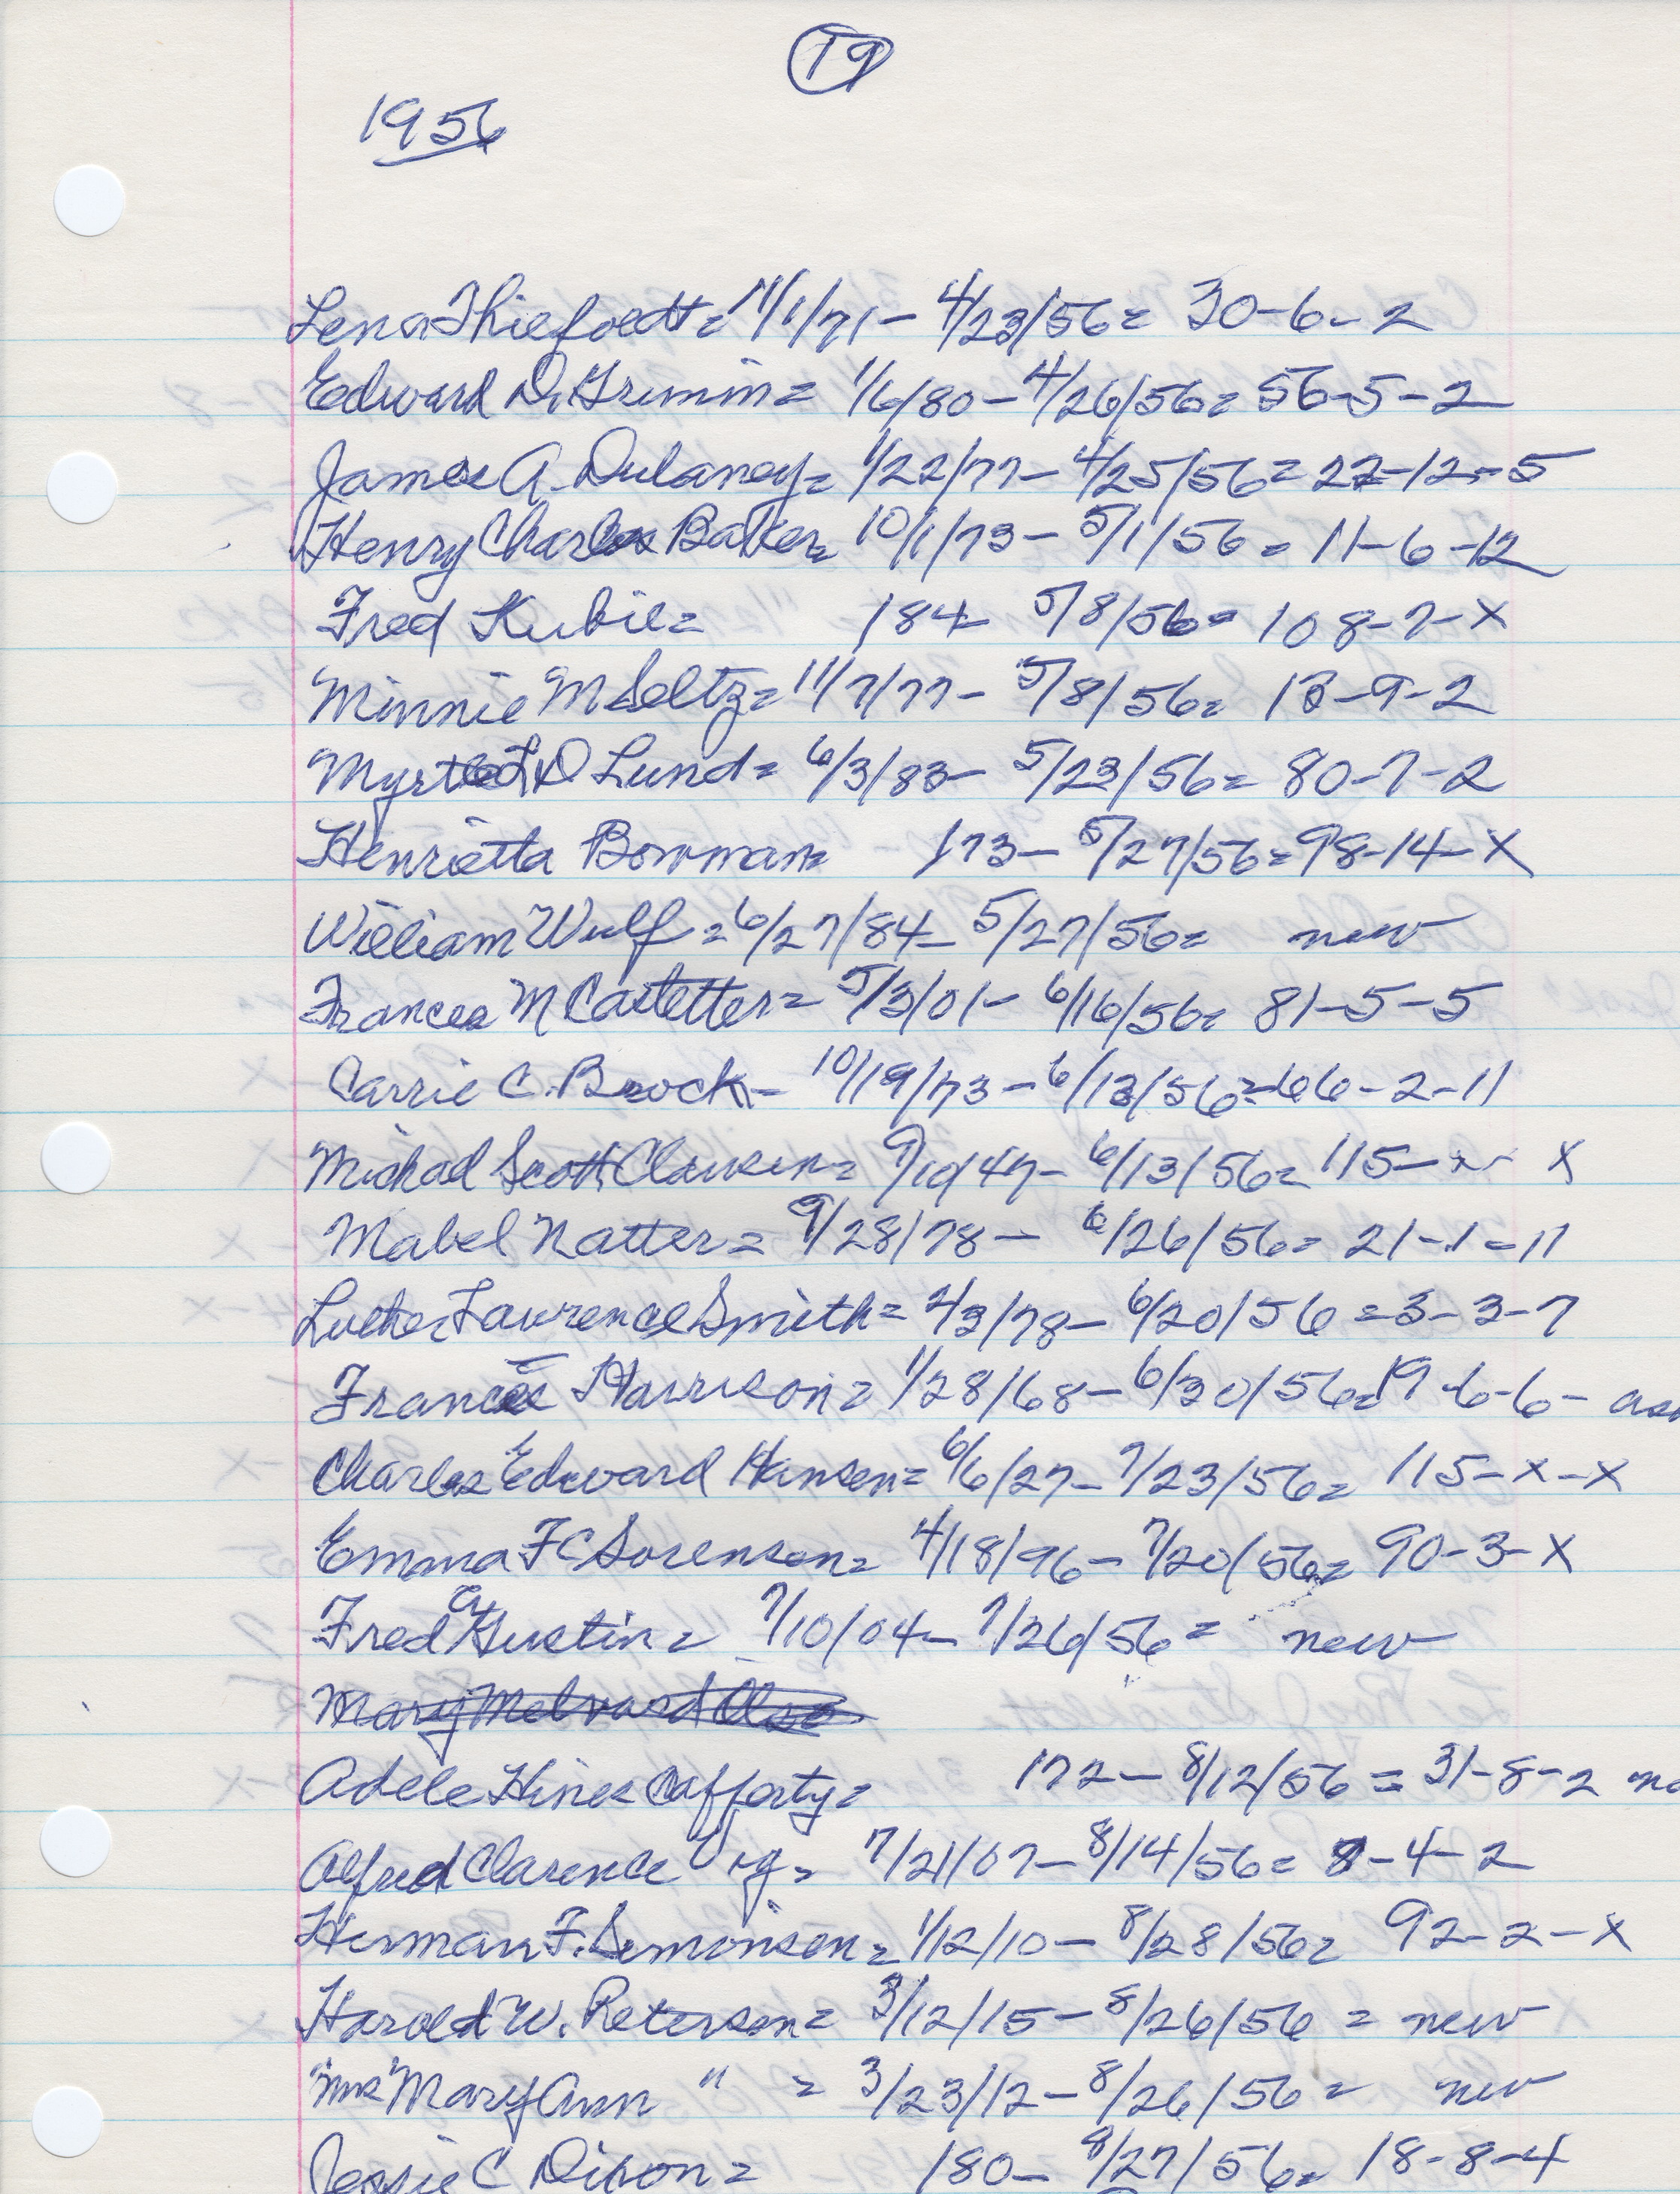 19
1956
Lena Thiefoedt = 11/1/71 - 4/23/56 = 30-6-2
Edward D. Grimm = 1/6/80 - 4/26/56 = 56-5-2
James A. Dulaney = 1/22/77 - 4/25/56 = 22-12-5
Henry Charles Baker = 10/1/73 - 5/1/56 = 11-6-12
Fred Kubie = 184 - 5/8/56 = 108-7-X
Minnie M Seltz = 11/7/77 - 5/8/56 = 13-9-2
Myrtle D Lund = 6/3/83 - 5/23/56 = 80-7-2
Henrietta Bowman = 173 - 5/27/56 = 98-14-X
William Wulf = 6/27/84 - 5/27/56 = new
Frances M Castetter = 5/3/01 - 6/16/56 = 81-5-5
Carrie C. Brock - 10/19/73 - 6/13/56 = 66-2-11
Michael Scott Clausen = 9/10/47 - 6/13/56 = 115-x- X
Mabel Natter = 9/28/78 - 6/26/56 = 21-1-11
Luther Lawrence Smith = 2/3/78 - 6/20/56 = 3-3-7
Frances Harrison = 1/28/68 - 6/30/56 = 19-6-6-
Charles Edward Hansen = 6/6/27 - 7/23/56 = 115-X-X
Emma FC Sorensen = 4/18/96 - 7/20/56 = 90-3-X
Fred Gustin = 7/10/04 - 7/26/56 = new
Adele Hines Cafferty = 172 - 8/12/56 = 31-8-2
Alfred Clarence = 7/21/07 - 8/14/56 = -4-2
Herman F. Simonsen = 1/12/10 - 8/28/56 = 92-2-X
Harold W. Peterson = 3/12/15 - 8/26/56 = new
"Mrs" Mary Ann " = 3/23/12 - 8/26/56 = new
Jessie C Dixon = 180 - 8/27/56 = 18-8-4